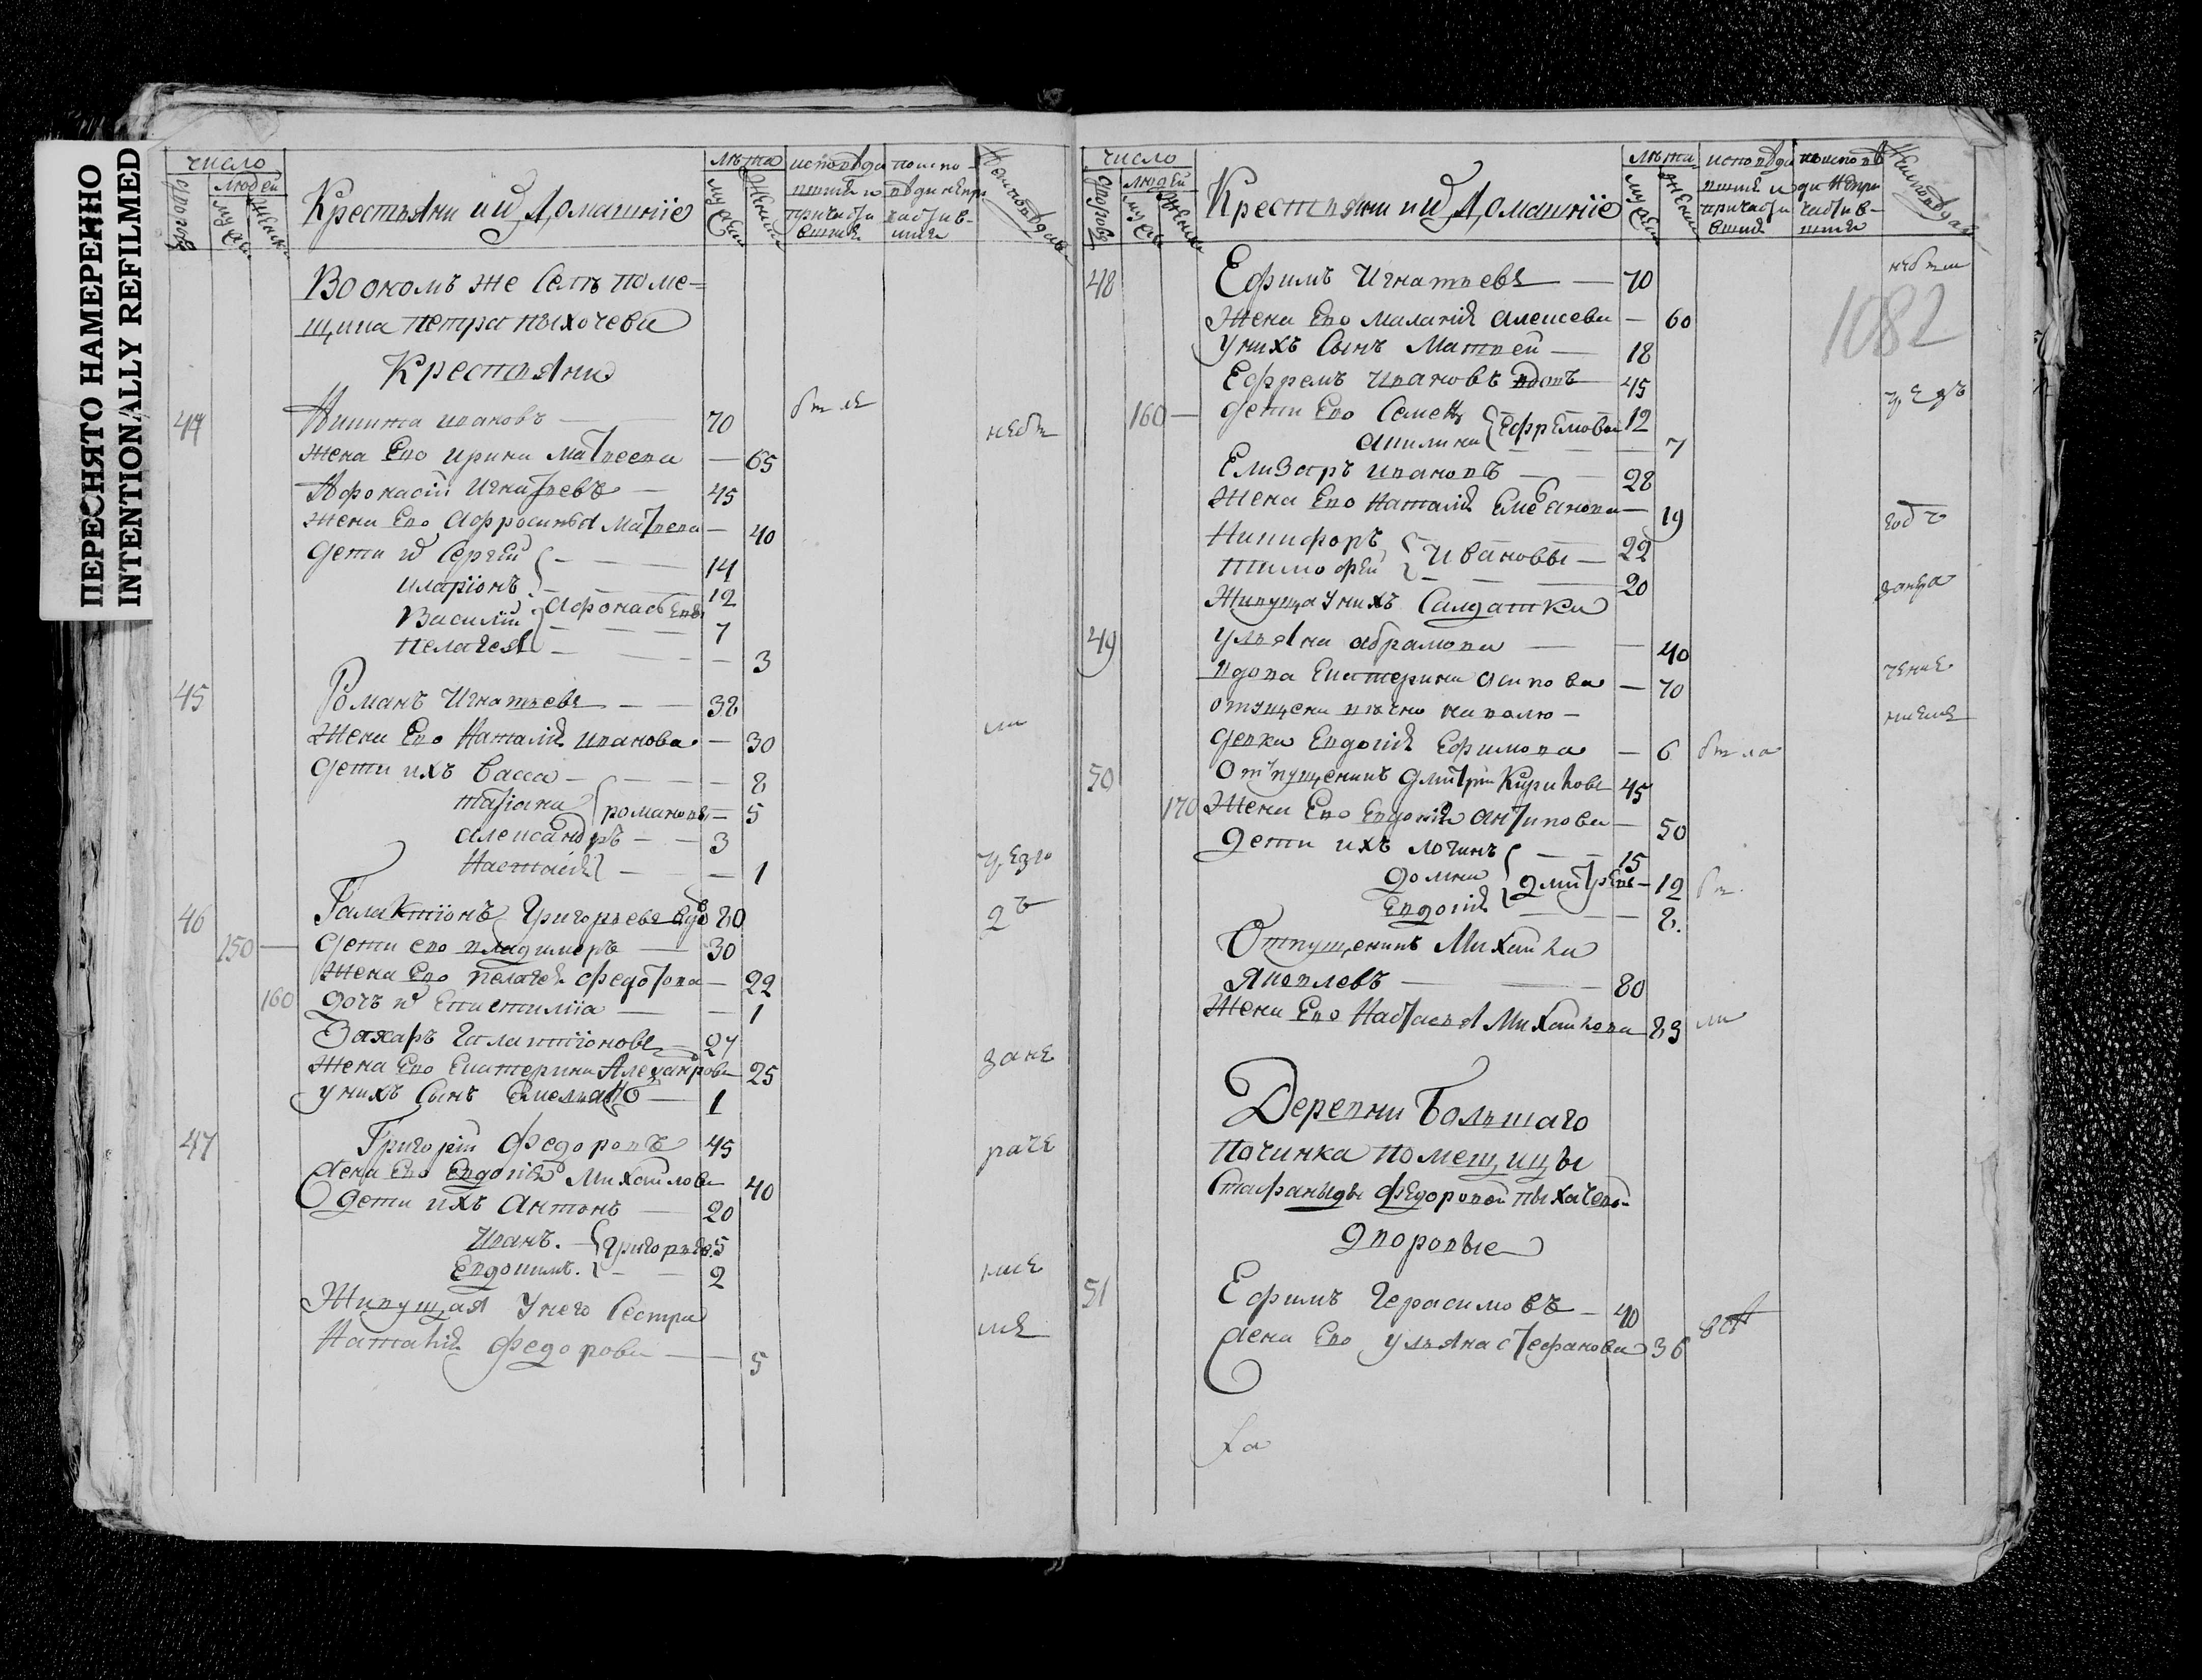 ПЕРЕСНЯТО НАМЕРЕННО
INTENTIONALLY REFILMED
число
людей
Крестьяни ихъ Домашнiе
лѣта
Во ономъ же Селѣ поме-
щика петра пыхочева
Крестьяни
44 Никита ивановъ — 70 были небы
жена Ево ирина матвеева — 65
Афонасiй игнатьевъ — 45
жена Ево афросинья матвева — 40
дети и Сергей — 14
иларiонъ 12
Василiй афонасьевы 7
пелагея — 3
45 Романъ Игнатьевъ — 32
жена Ево Наталiя иванова — 30 ли
дети ихъ васса — 8
татiана романовы — 5
александръ — 3
Настасiя — 1 чрезъ
46 Галактiонъ Григорьевъ вдо 80 2
150 дети ево владимеръ — 30
жена Ево пелагея федотова — 22
160 дочъ и Епистимiа — 1
Захаръ Галактiоновъ — 27
жена Ево Екатерина Александрова 25 зане
у нихъ Сынъ Емельянъ — 1
47 Григорiй Федоровъ 45 раче
жена Ево Евдокiя Михайлова 40
дети ихъ антонъ — 20
Иванъ. Григорьевы. 5
Евдокимъ. — 2 ние
Живущая у него Сестра
Наталiя Федорова — 5
число
людей
Крестьяни ихъ Домашнiе
лѣта
48 Ефимъ Игнатьевъ — 70 небыли
1082
жена Ево маланiя алексева — 60
у нихъ Сынъ Матвей — 18
Ефремъ ивановъ вдовъ 45
160 — дети Ево Семенъ Ефремовы 12
акилина — 7
Елизаръ ивановъ — 28
жена Ево Наталiя Емельянова — 19
Никифоръ Ивановы — 22
тимофей — 20
живуща у нихъ Салдатка
49 ульяна абрамова — 40
вдова Екатерина осипова — 70
отпущена вѣчно на волю —
девка Евдокiя Ефимова — 6 была
50 Отпущенникъ Дмитрiй Кирилов 45
170 жена Ево Евдокiя антипова — 50
дети ихъ логинъ — 15
домна дмитревы — 12
Евдокiя — 8.
Отпущеникъ Михайла
Яковлевъ — 80
жена Ево Настасья Михайлова 83 ли
Деревни Большаго
починка помещицы
Стафаниды Федоровой пыхачевой
Дворовые
51 Ефимъ Герасимовъ — 40
жена Ево ульяна стефанова 36